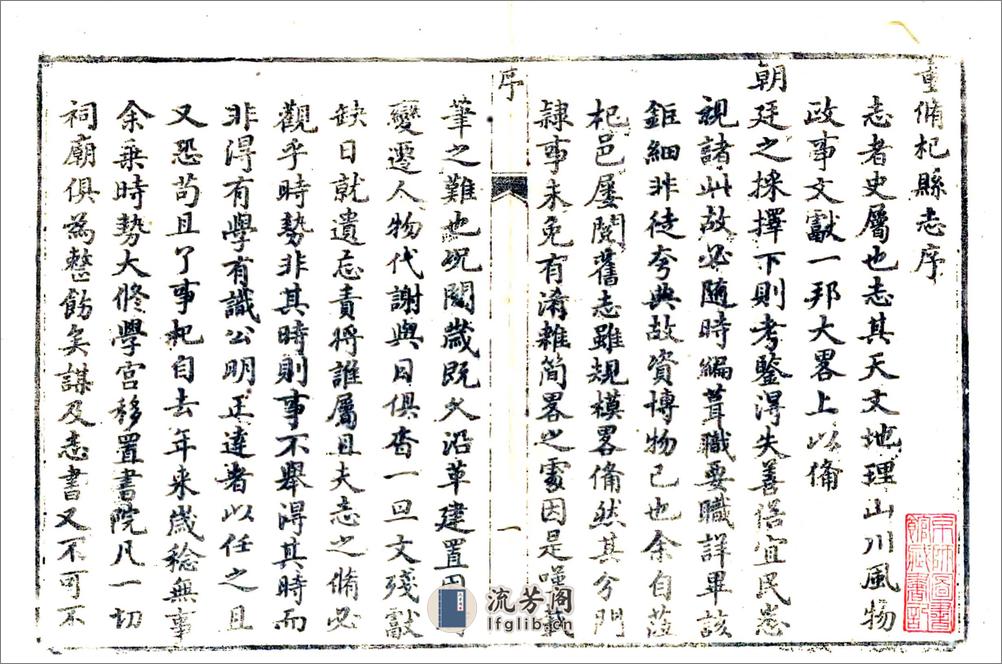 重脩杞縣志序
志者史屬也志其天文地理山川風物
政事文獻一邦大畧上以備
朝廷之採擇下則考鑒得失善俗宜民悉
視諸此故必隨時編葺職要職詳畢該
鉅細非徒夸典故資博物已也余自蒞
杞邑屡閱舊志雖規模畧備然其分門
隸事未免有淆雜簡畧之處因是嘆載
序
一
筆之難也况閱歲既久沿革建置
變遷人物代謝與日俱杳一旦文殘獻
缺日就遺忘責將誰屬且夫志之脩必
觀乎時勢非其時則事不舉得其時而
非得有學有識公明正達者以任之且
又恐苟且了事杞自去年来歲稔無事
余乗時勢大修學宫移置書院凡一切
祠廟俱為整飭矣謀及志書又不可不
流芳阁
lfglib.cn
京師圖書
館藏書記